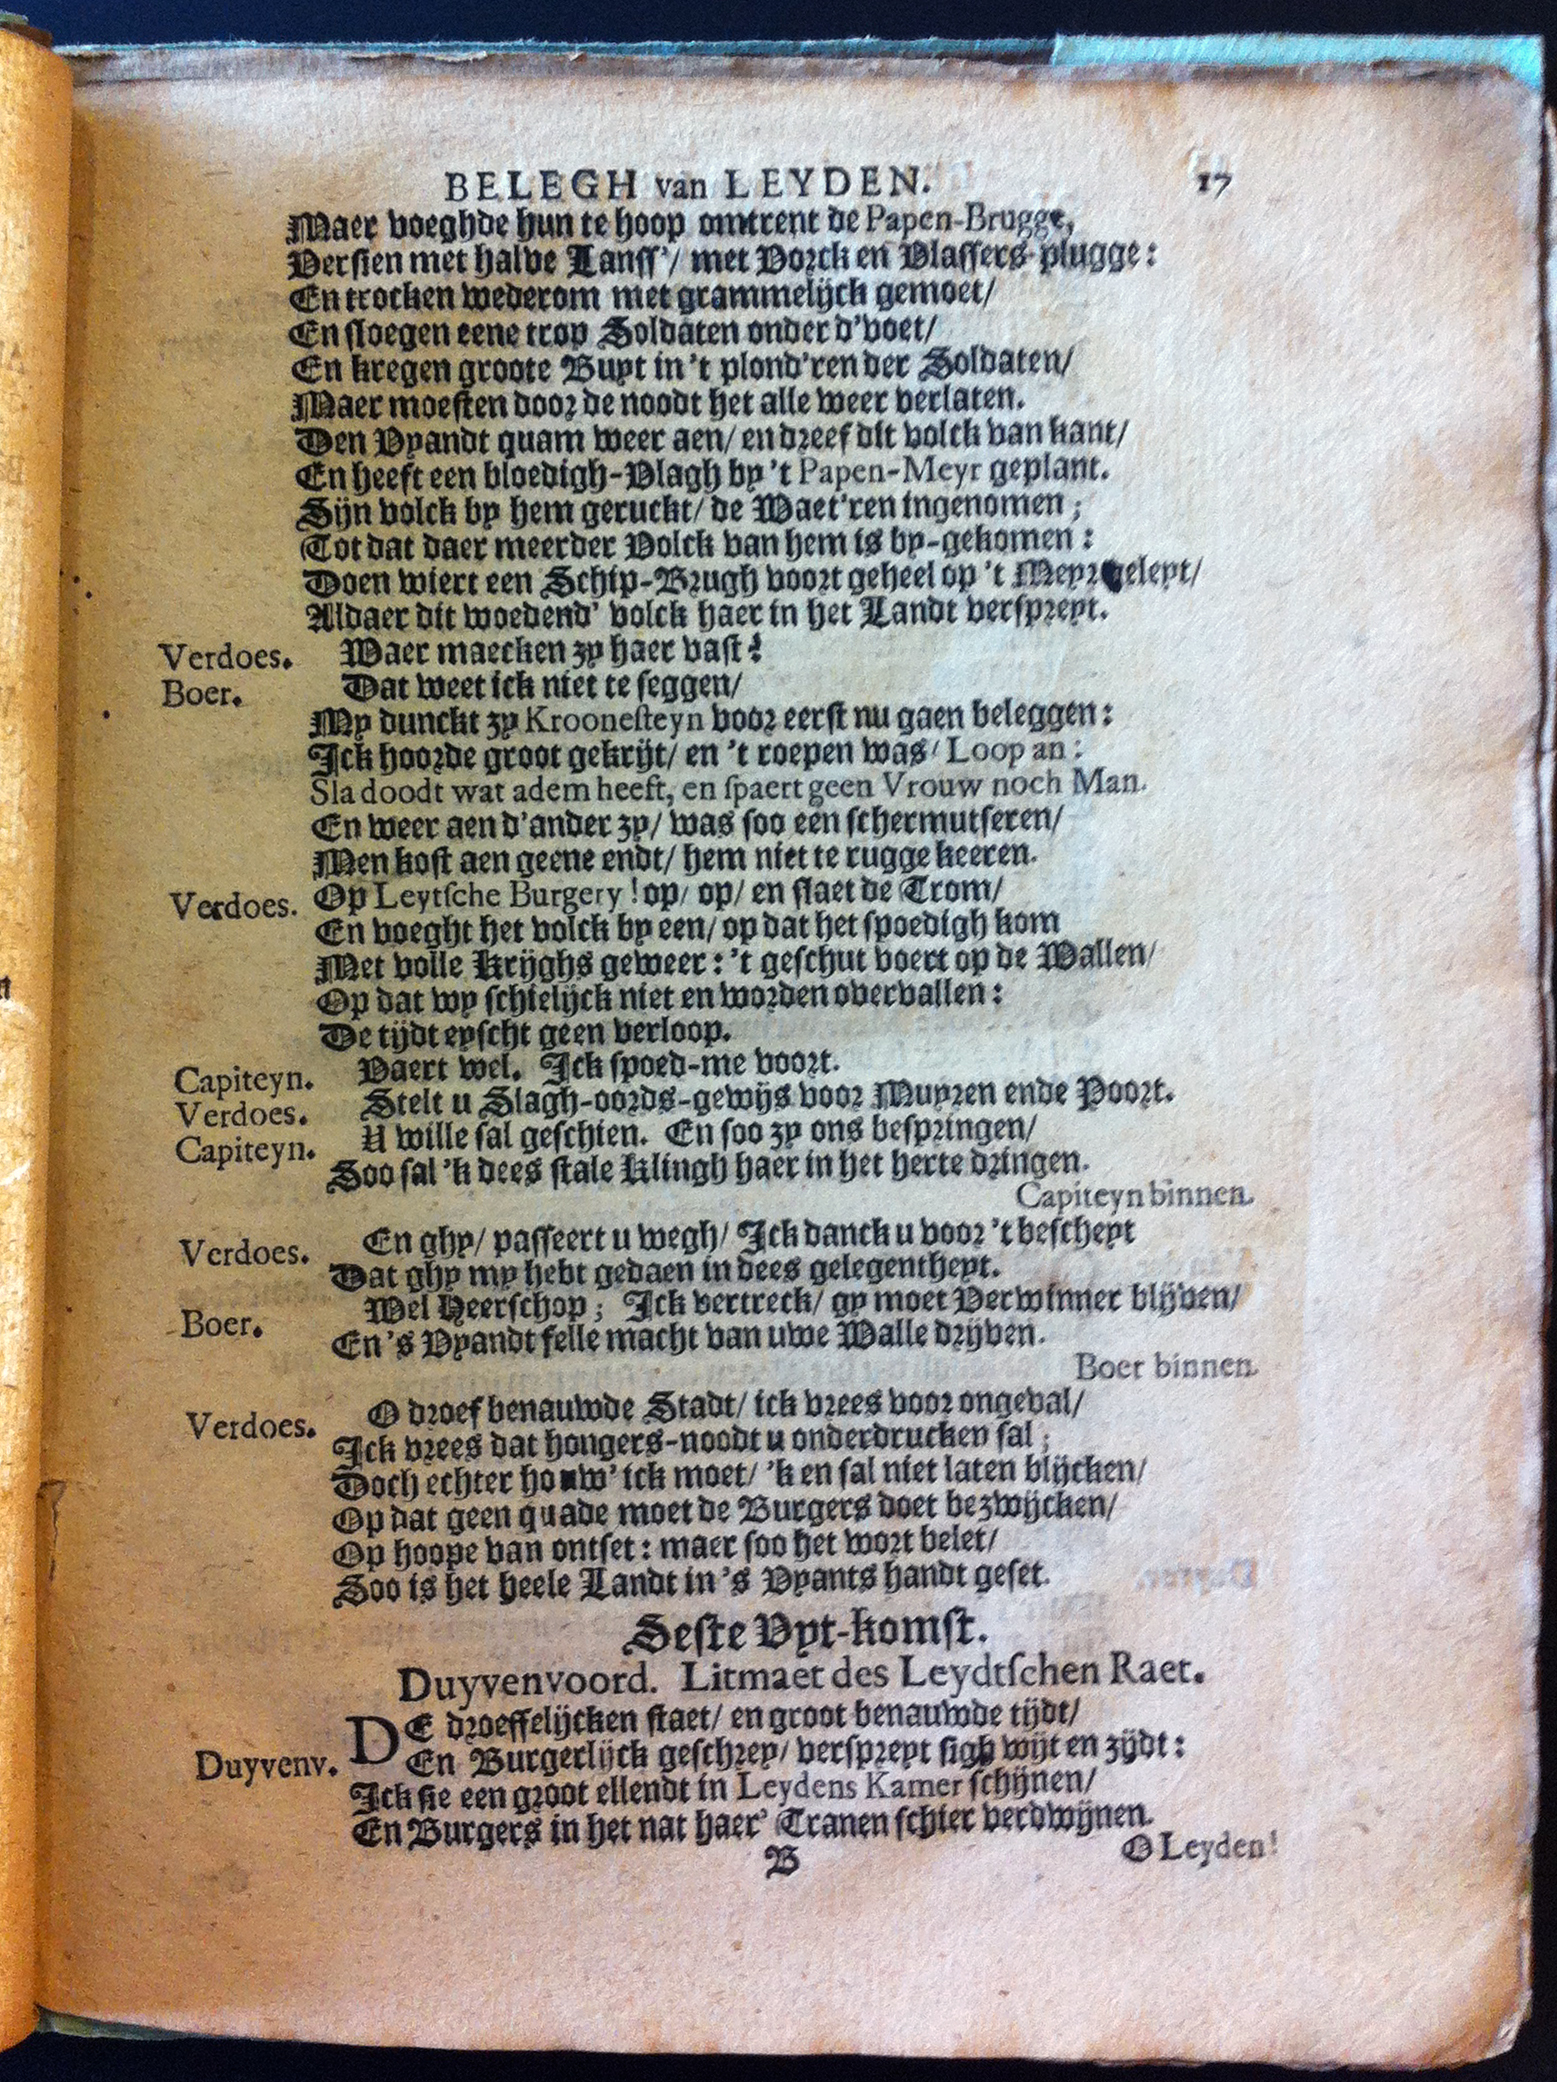 BELEGH van LEYDEN. 17
Maer voeghde hun te hoop omtrent de Papen-Brugge,
Versien met halve Lanss'/ met Vorck en Vlassers-plugge:
En trocken wederom met grammelijck gemoet/
En sloegen eene trop Soldaten onder d'voet/
En kregen groote Buyt in 't plond'ren der Soldaten/
Maer moesten door de noodt het alle weer verlaten.
Den Vyandt quam weer aen/ en dreef dit volck van kant/
En heeft een bloedigh-Vlagh by 't Papen-Meyr geplant.
Sijn volck by hem geruckt/ de Waet'ren ingenomen;
Tot dat daer meerder Volck van hem is by-gekomen:
Doen wiert een Schip-Brugh voort geheel op 't Meyr geleyt/
Aldaer dit woedend' volck haer in het Landt verspreyt.
Verdoes. Waer maecken zy haer vast?
Boer. Dat weet ick niet te seggen/
My dunckt zy Kroonesteyn voor eerst nu gaen beleggen:
Ick hoorde groot gekrijt/ en 't roepen was/ Loop an:
Sla doodt wat adem heeft, en spaert geen Vrouw noch Man.
En weer aen d'ander zy/ was soo een schermutseren/
Men kost aen geene endt/ hem niet te rugge keeren.
Verdoes. Op Leytsche Burgery! op/ op/ en slaet de Trom/
En voeght het volck by een/ op dat het spoedigh kom
Met volle Krijghs geweer: 't geschut voert op de Wallen/
Op dat wy schielijck niet en worden overvallen:
De tijdt eyscht geen verloop.
Capiteyn. Vaert wel. Ick spoed-me voort.
Verdoes. Stelt u Slagh-oords-gewijs voor Muyren ende Poort.
Capiteyn. U wille sal geschien. En soo zy ons bespringen/
Soo sal 'k dees stale Klingh haer in het herte dringen.
Capiteyn binnen.
Verdoes. En ghy/ passeert u wegh/ Ick danck u voor 't bescheyt
Dat ghy my hebt gedaen in dees gelegentheyt.
Boer. Wel Heerschop; Ick vertreck/ gy moet Verwinner blijven/
En 's Vyandt felle macht van uwe Walle drijven.
Boer binnen.
Verdoes. O droef benauwde Stadt/ ick vrees voor ongeval/
Ick vrees dat hongers-noodt u onderdrucken sal;
Doch echter houw' ick moet/ 'k en sal niet laten blijcken/
Op dat geen quade moet de Burgers doet bezwijcken/
Op hoope van ontset: maer soo het wort belet/
Soo is het heele Landt in 's Vyants handt geset.
Seste Vyt-komst.
Duyvenvoord. Litmaet des Leydtschen Raet.
DE droeffelijcken staet/ en groot benauwde tijdt/
Duyvenv. En Burgerlijck geschrey/ verspreyt sigh wijt en zijdt:
Ick sie een groot ellendt in Leydens Kamer schijnen/
En Burgers in het nat haer' Tranen schier verdwijnen.
B O Leyden!